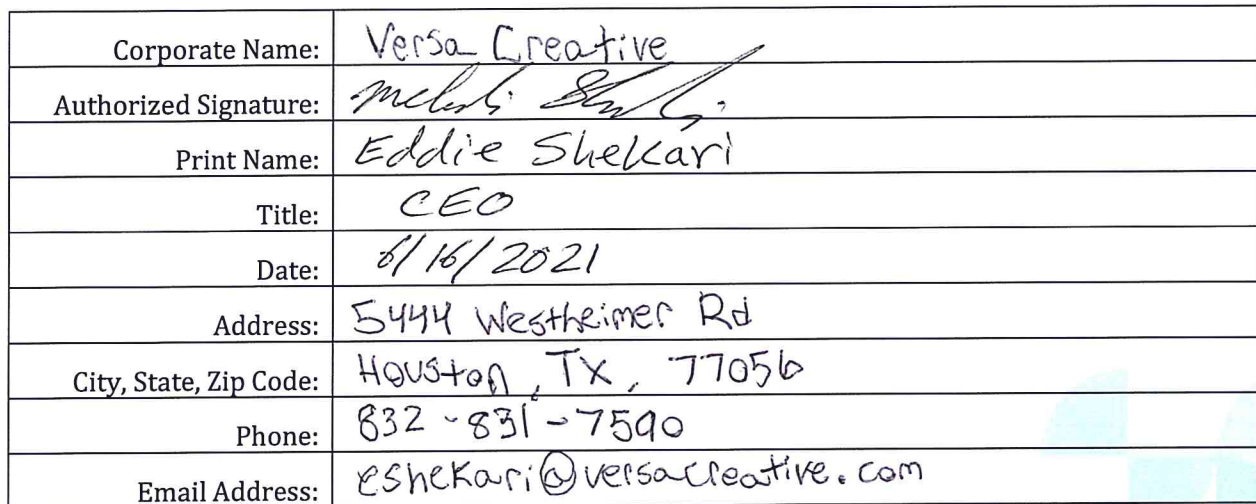 Corporate Name: Versa Creative
Authorized Signature:
Print Name: Eddie Shekari
Title: CEO
Date: 6/16/2021
Address: 5444 Westheimer Rd
City, State, Zip Code: Houston, TX, 77056
Phone: 832-831-7590
Email Address: eshekari@versacreative.com